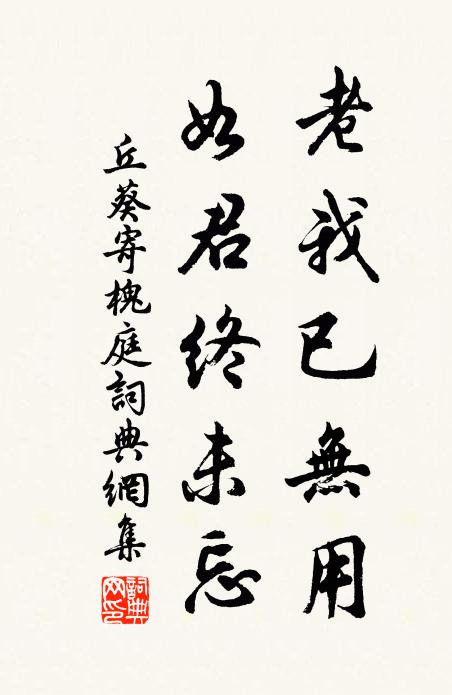 老我已無用
如君終未忘
丘葵寄槐庭詞典網集
詞典網印